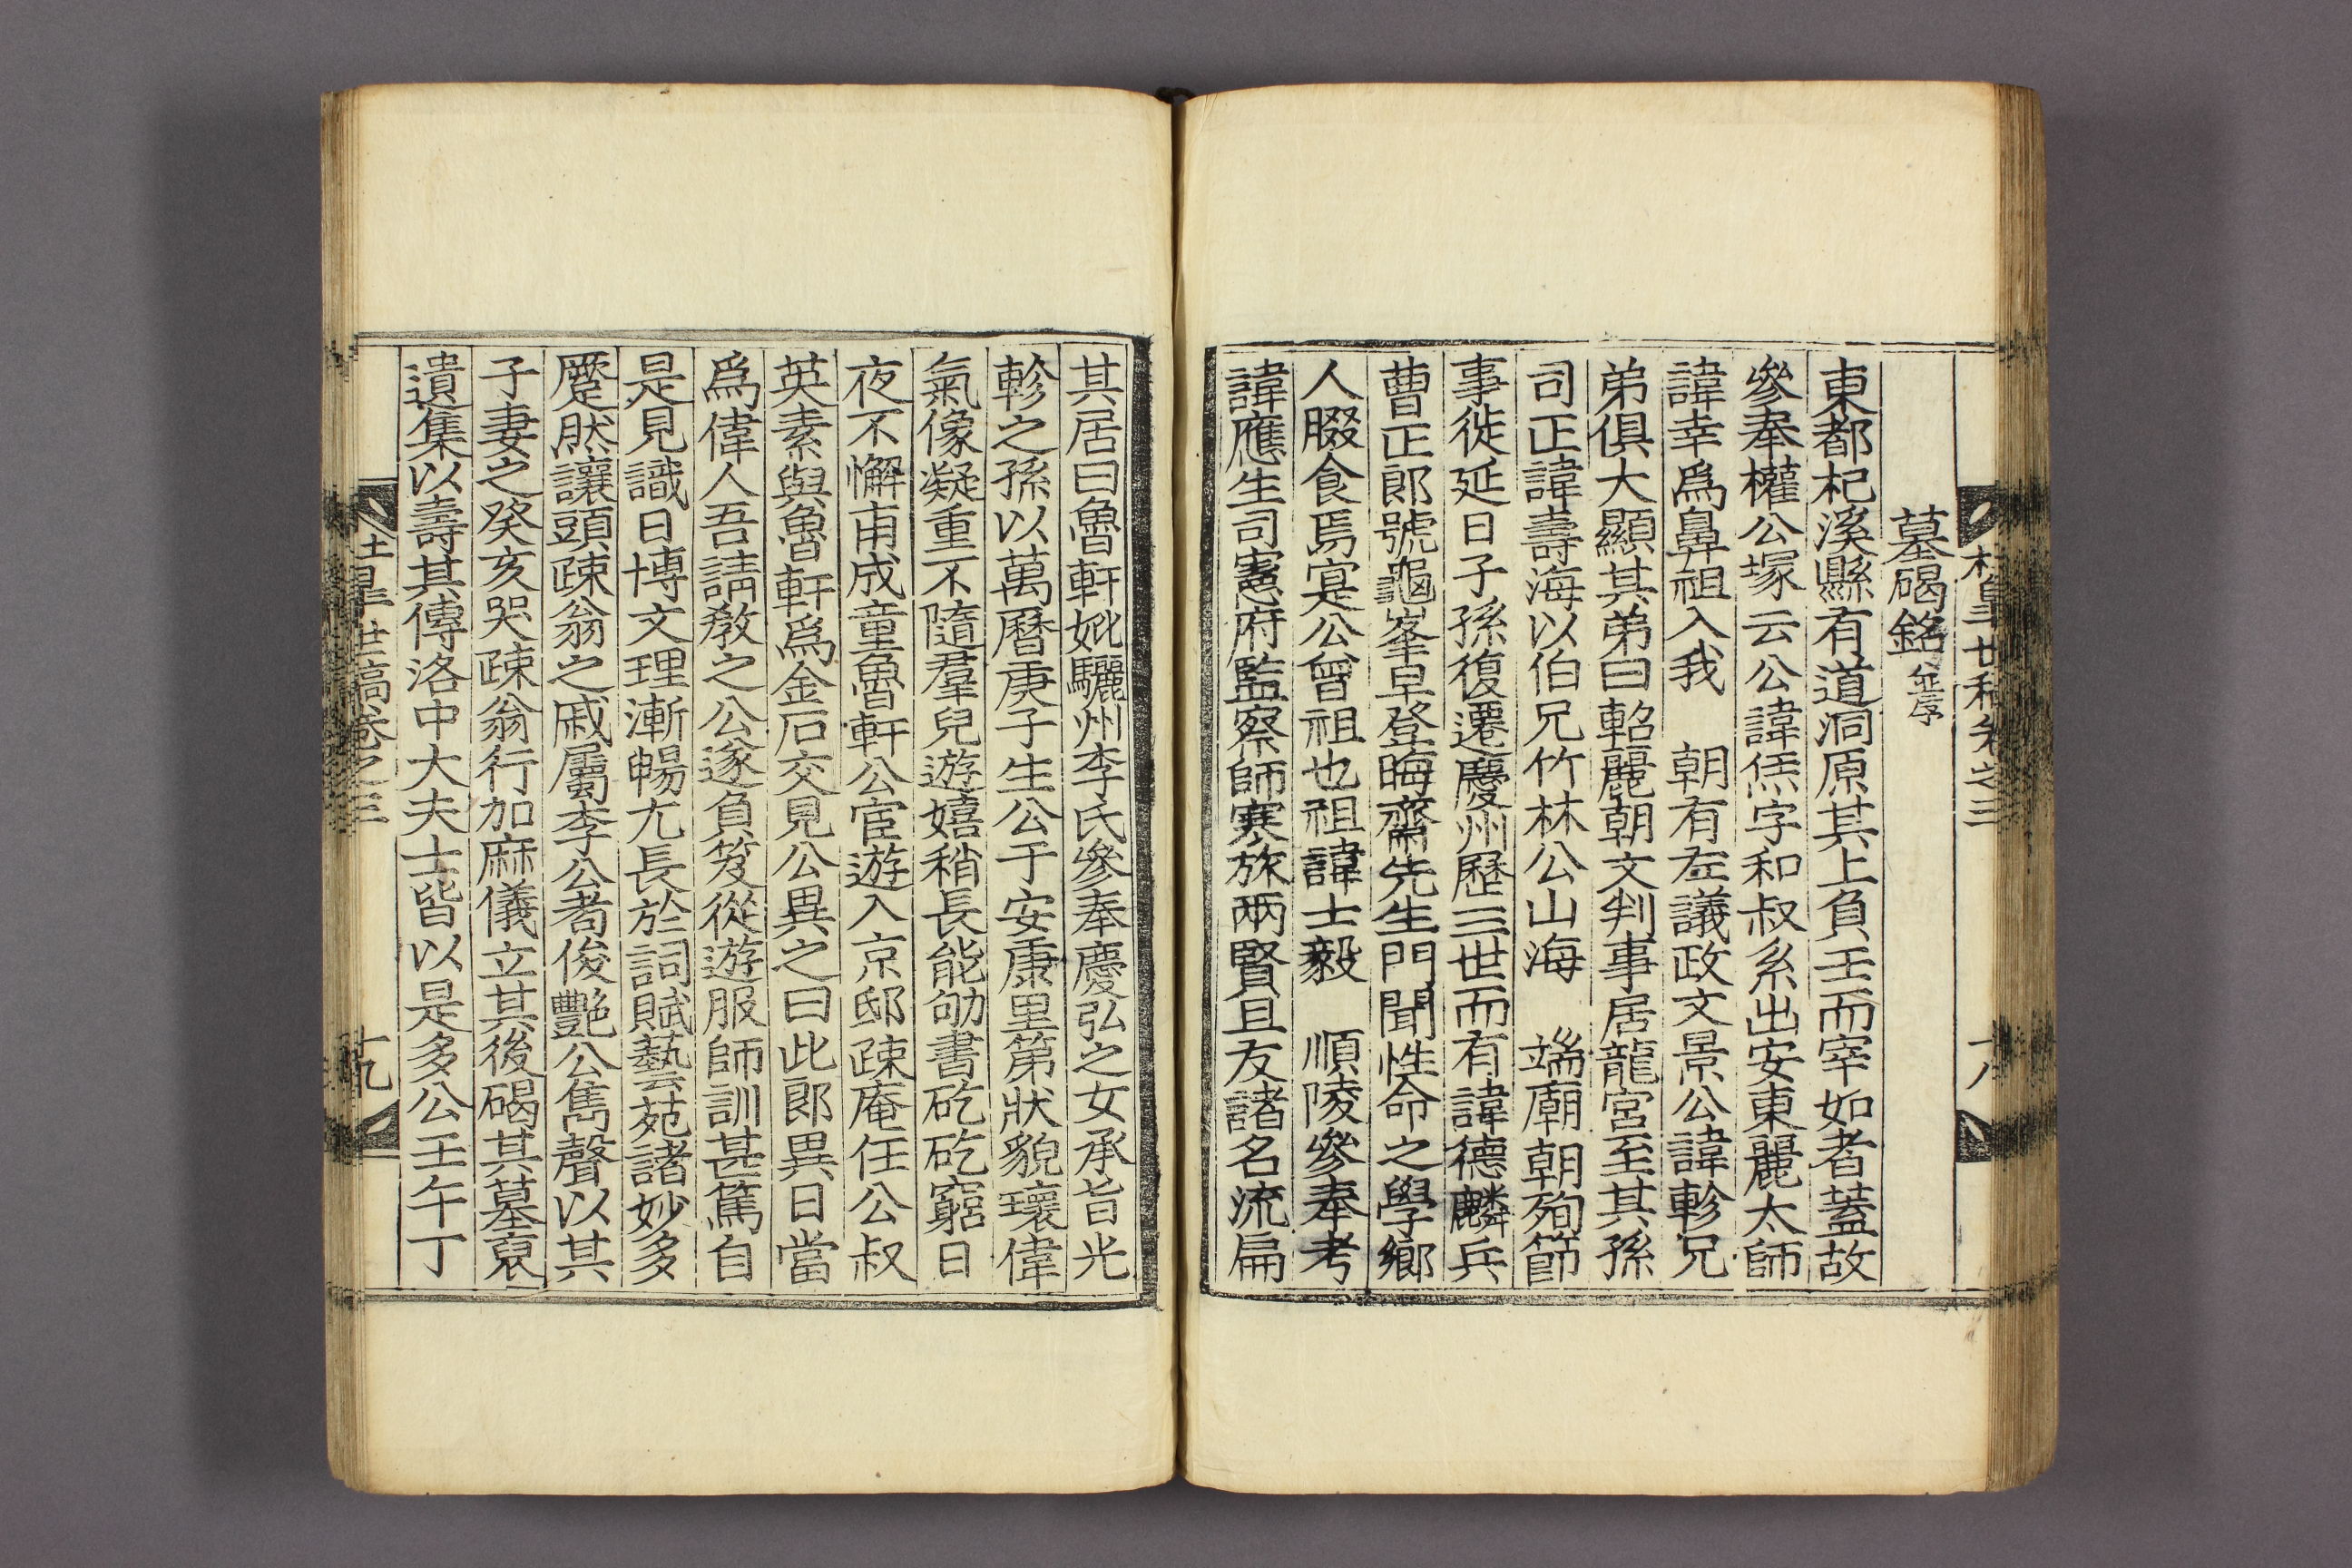 墓碣銘 並序
東都杞溪縣有道洞原其上負壬而宰如者蓋故
參奉權公塚云公諱烋字和叔系出安東麗太師
諱幸爲鼻祖入我 朝有左議政文景公諱軫兄
弟俱大顯其弟曰軺麗朝文判事居龍宮至其孫
司正諱壽海以伯兄竹林公山海 端廟朝殉節
事徙延日子孫復遷慶州歷三世而有諱德麟兵
曹正郞號龜峯早登晦齋先生門聞性命之學鄕
人腏食焉寔公曾祖也祖諱士毅 順陵參奉考
諱應生司憲府監察師寒旅兩賢且友諸名流扁
其居曰魯軒妣驪州李氏參奉慶弘之女承旨光
軫之孫以萬曆庚子生公于安康里第狀貌瓌偉
氣像凝重不隨羣兒遊嬉稍長能劬書矻矻窮日
夜不懈甫成童魯軒公宦遊入京邸疎庵任公叔
英素與魯軒爲金石交見公異之曰此郞異日當
爲偉人吾請敎之公遂負笈從遊服師訓甚篤自
是見識日博文理漸暢尤長於詞賦藝苑諸妙多
蹙然讓頭疎翁之戚屬李公耉俊艶公雋聲以其
子妻之癸亥哭疎翁行加麻儀立其後碣其墓裒
遺集以壽其傳洛中大夫士皆以是多公壬午丁
世稿卷之三 十九
世稿卷之三 十八